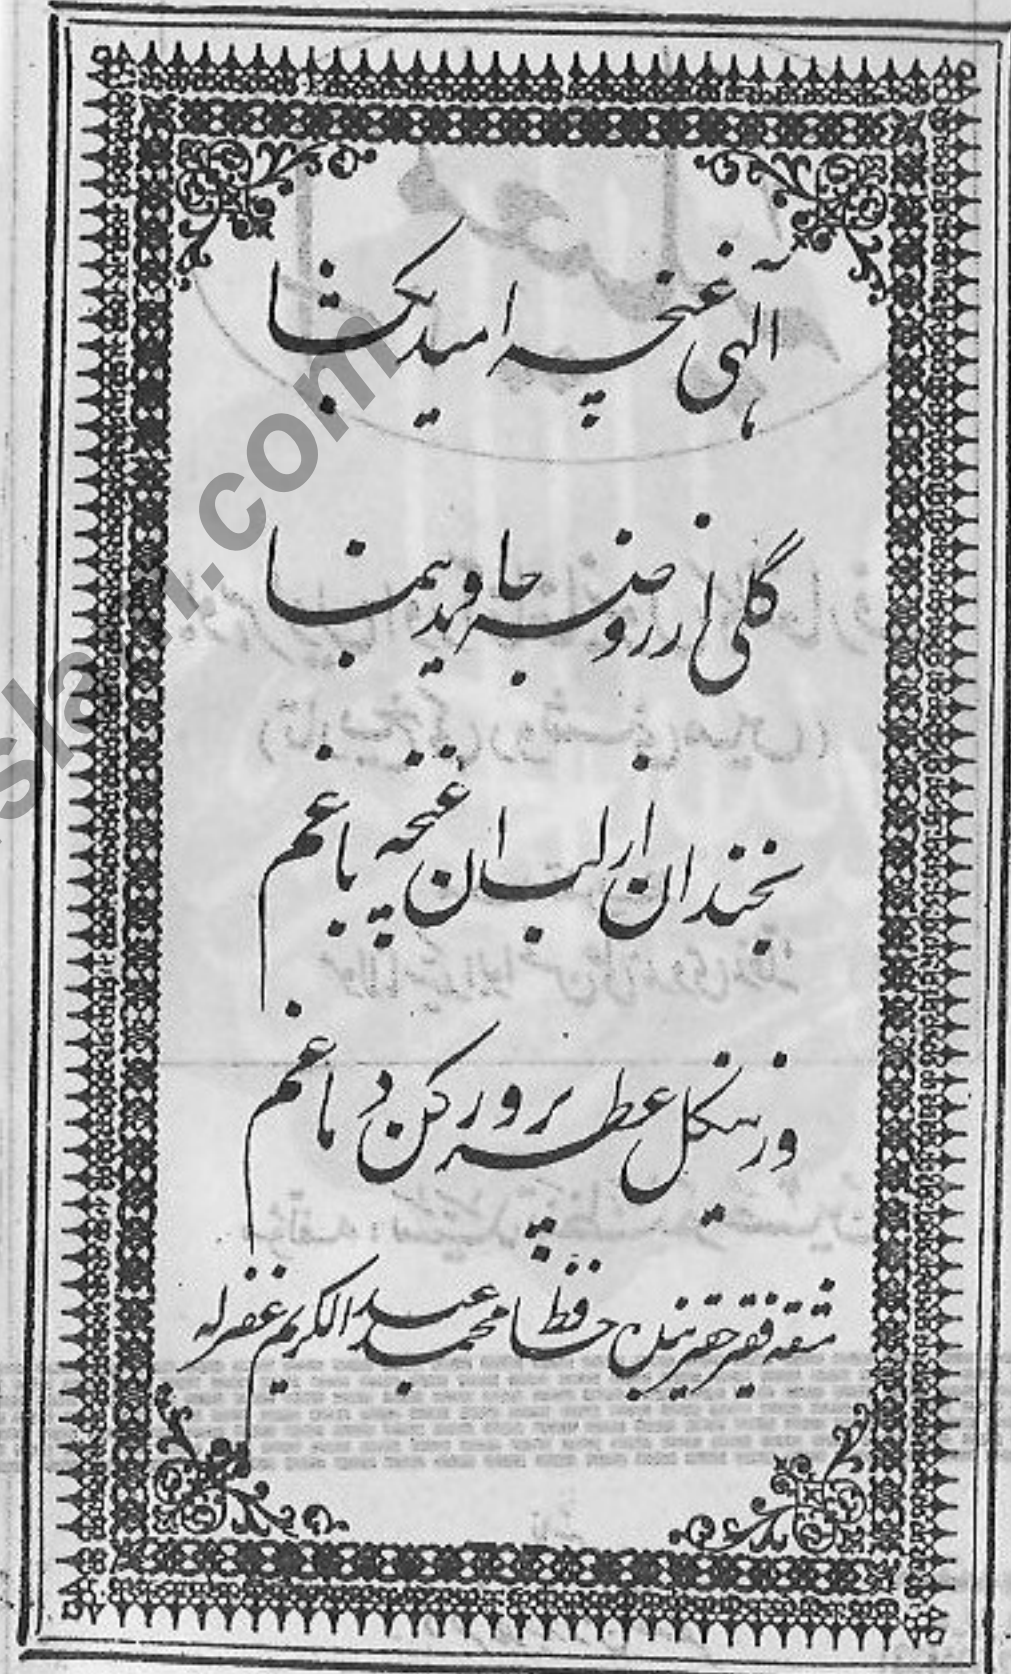 الٰہی غنچہ امید بکشا
گلی از روضہ جاوید بنما
بخندان از لب ان غنچہ باغم
وز ین گل عطر پرور کن دماغم
مشقہ فقیر حقیر حافظ محمد عبدالکریم غفرلہ